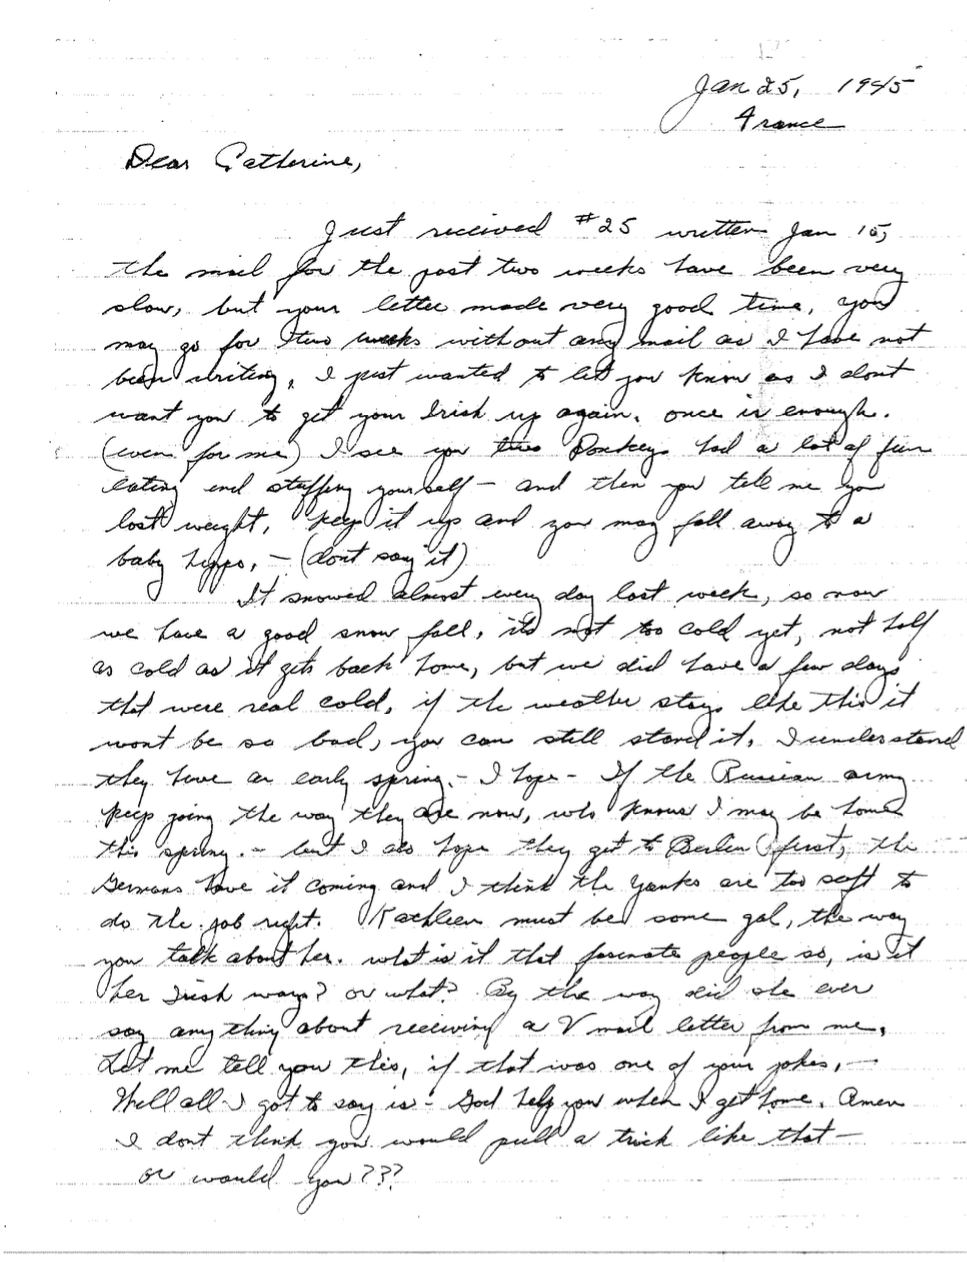 Jan 25, 1945
France
Dear Catherine,
Just received #25 written Jan 15,
the mail for the past two weeks have been very
slow, but your letter made very good time, you
may go for two weeks without any mail as I have not
been writing, I just wanted to let you know as I dont
want you to get your Irish up again. once is enough.
(even for me) I see you two Donkeys had a lot of fun
eating and stuffing yourself - and then you tell me you
lost weight, keep it up and you may fall away to a
baby hippo, - (dont say it)
It snowed almost every day last week, so now
we have a good snow fall, its not too cold yet, not half
as cold as it gets back home, but we did have a few days
that were real cold, if the weather stays like this it
wont be so bad, you can still stand it, I understand
they have an early spring - I hope - If the Russian army
keep going the way they are now, who knows I may be home
this spring. - but I also hope they get to Berlin first, the
Germans have it coming and I think the Yanks are too soft to
do the job right. Kathleen must be some gal, the way
you talk about her. what is it that fascinate people so, is it
her Irish ways? or what? By the way did she ever
say anything about receiving a V mail letter from me,
Let me tell you this, if that was one of your jokes, -
Well all I got to say is - God help you when I get home. Amen
I dont think you would pull a trick like that -
or would you???